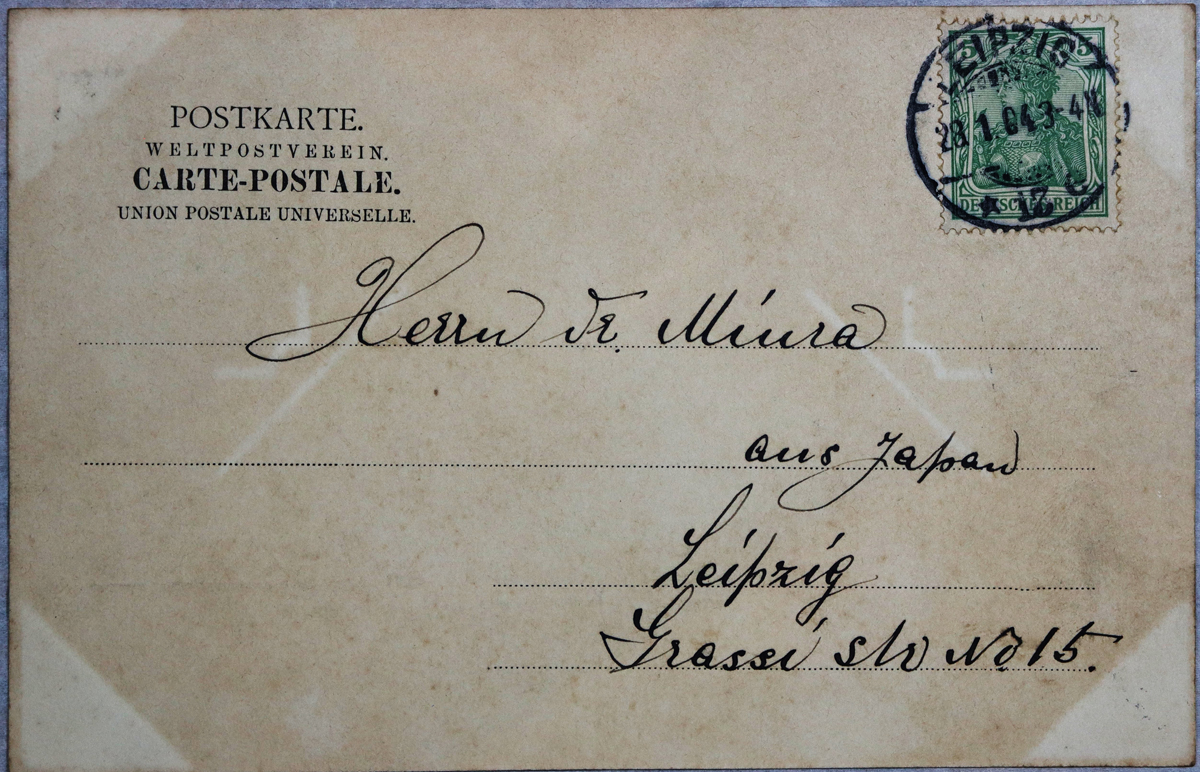 POSTKARTE.
WELTPOSTVEREIN.
CARTE-POSTALE.
UNION POSTALE UNIVERSELLE.
5 5
LEIPZIG
28.1.04.3-4N
* 13 c
DEUTSCHES REICH
Herrn Dr. Miura
aus Japan
Leipzig
Grassi str No 15.